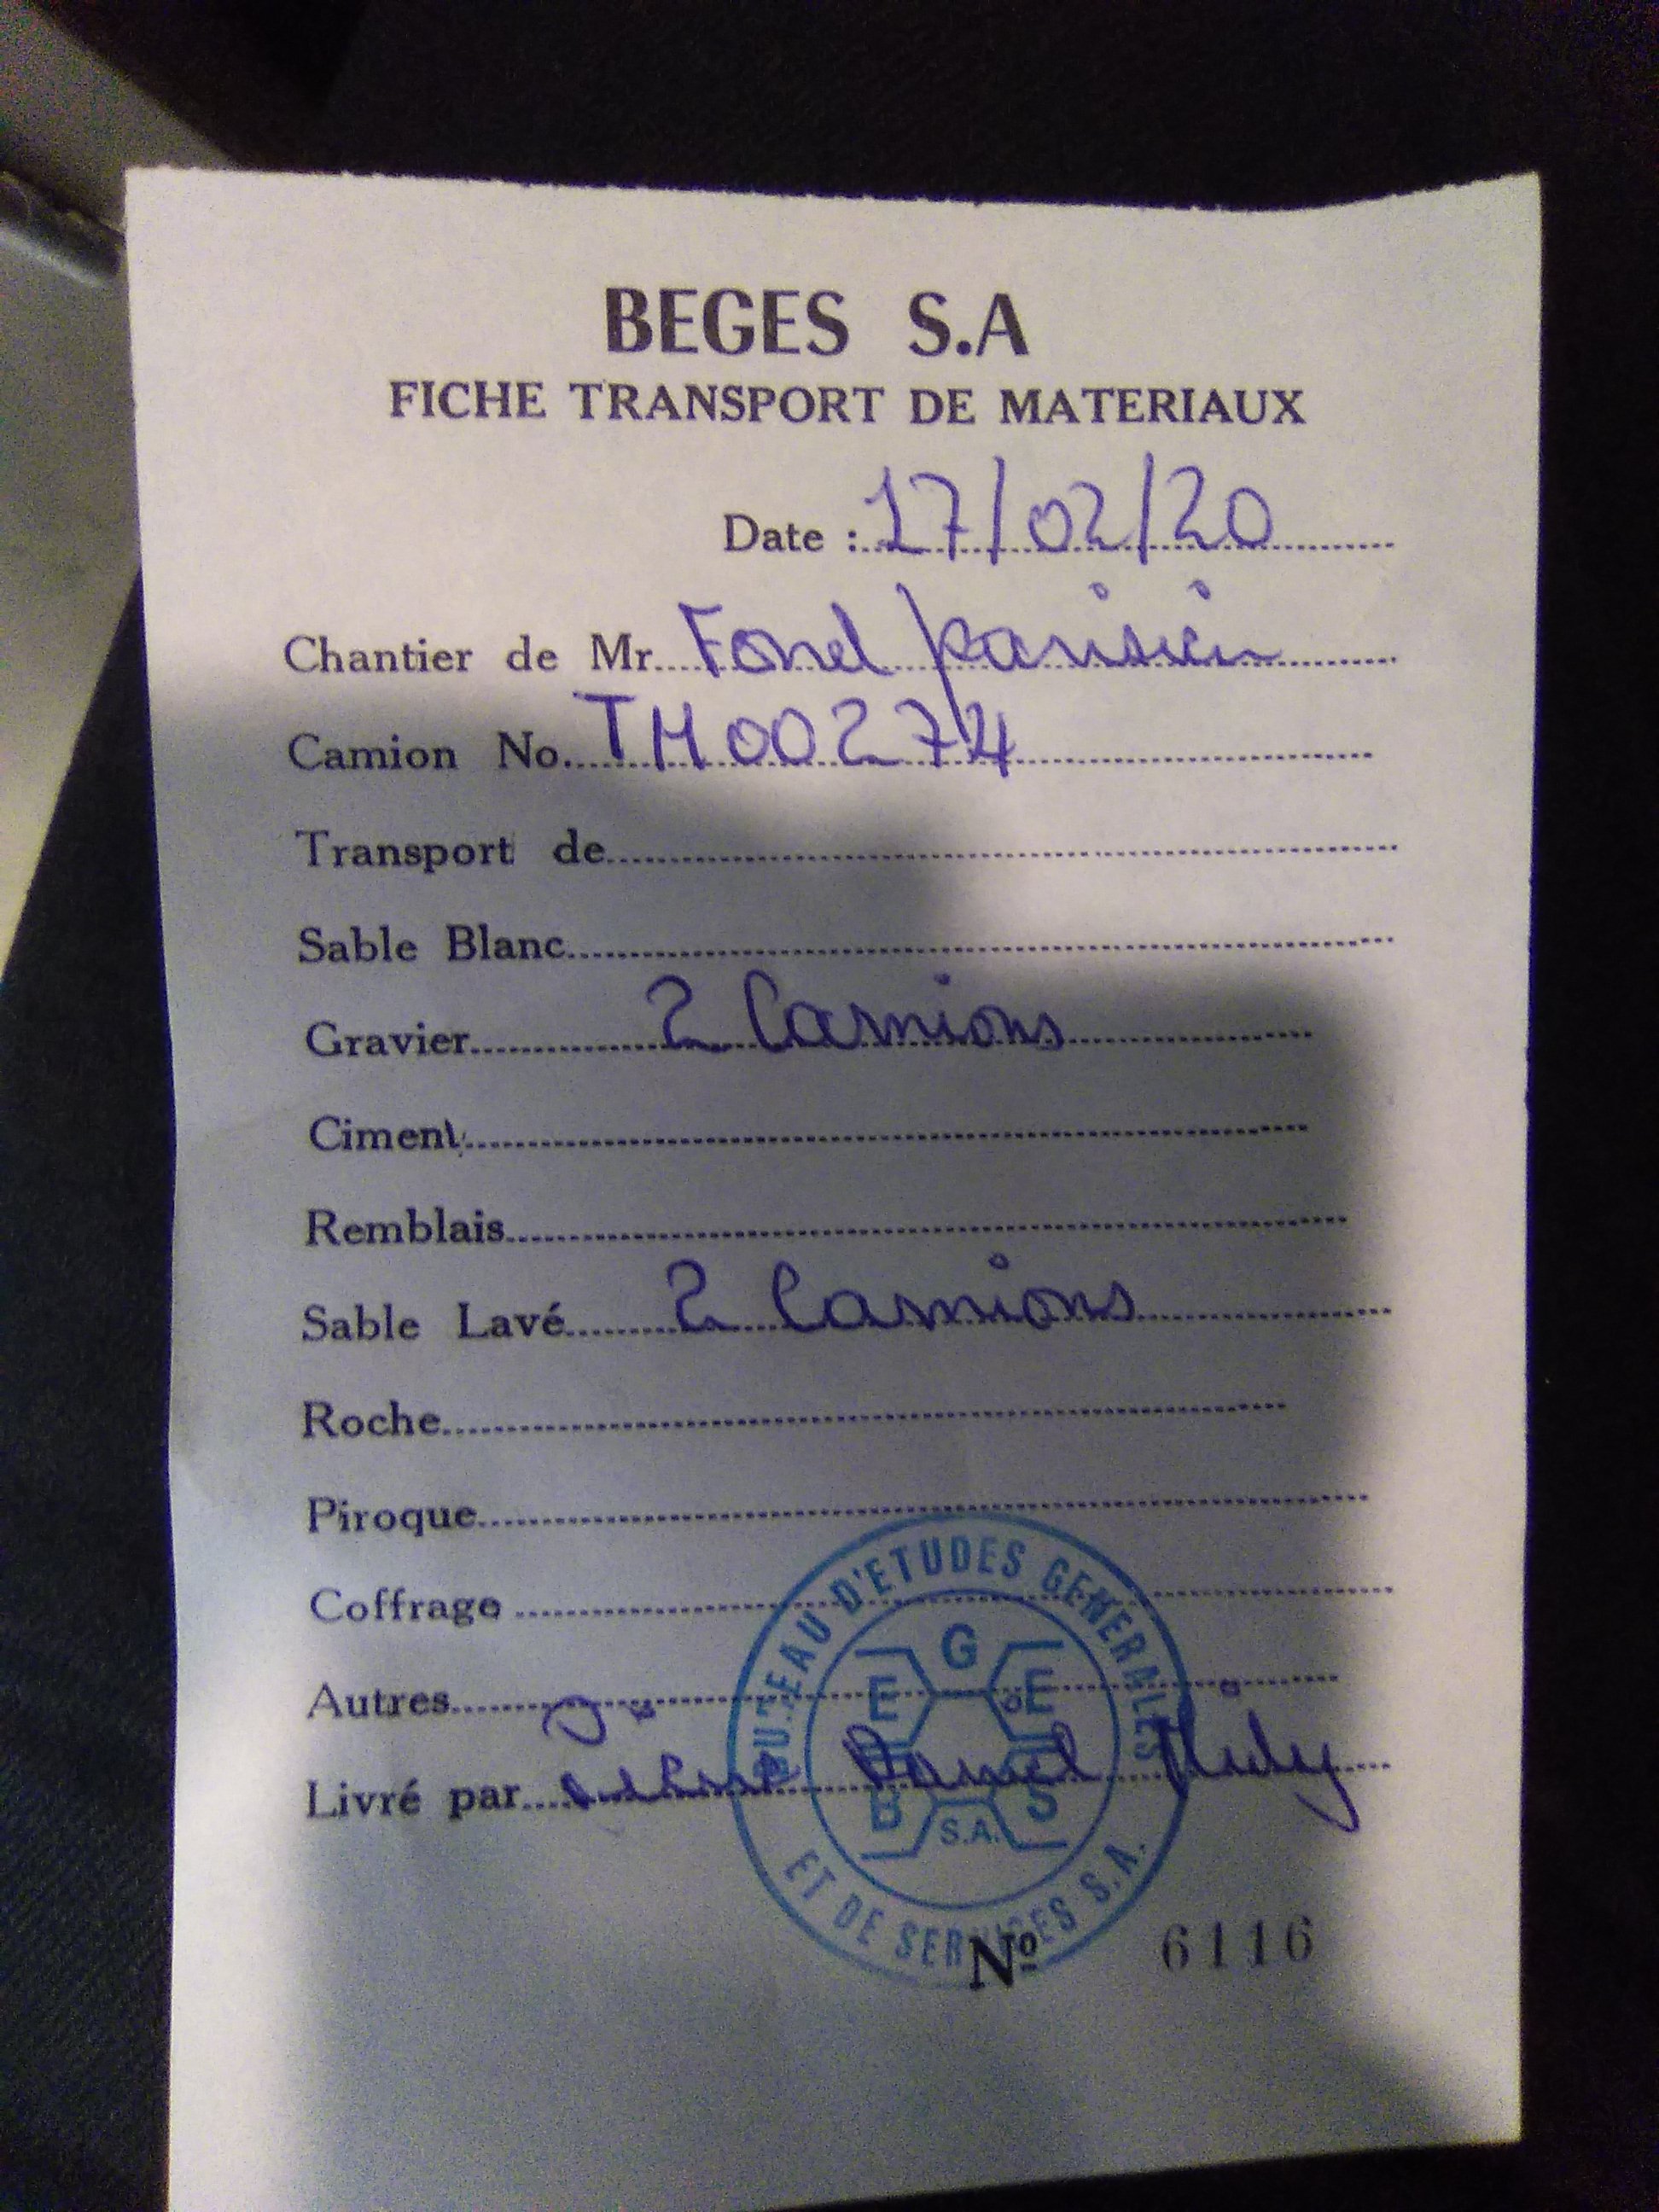 BEGES S.A
FICHE TRANSPORT DE MATERIAUX
Date : 17/02/20
Chantier de Mr. Fond parisien
Camion No. TM00274
Transport de
Sable Blanc
Gravier 2 Camions
Ciment
Remblais
Sable Lavé 2 Camions
Roche
Piroque
Coffrage
Autres
Livré par Daniel
BUREAU D'ETUDES GENERALES
ET DE SERVICES S.A.
BEGES
S.A.
Nº 6116